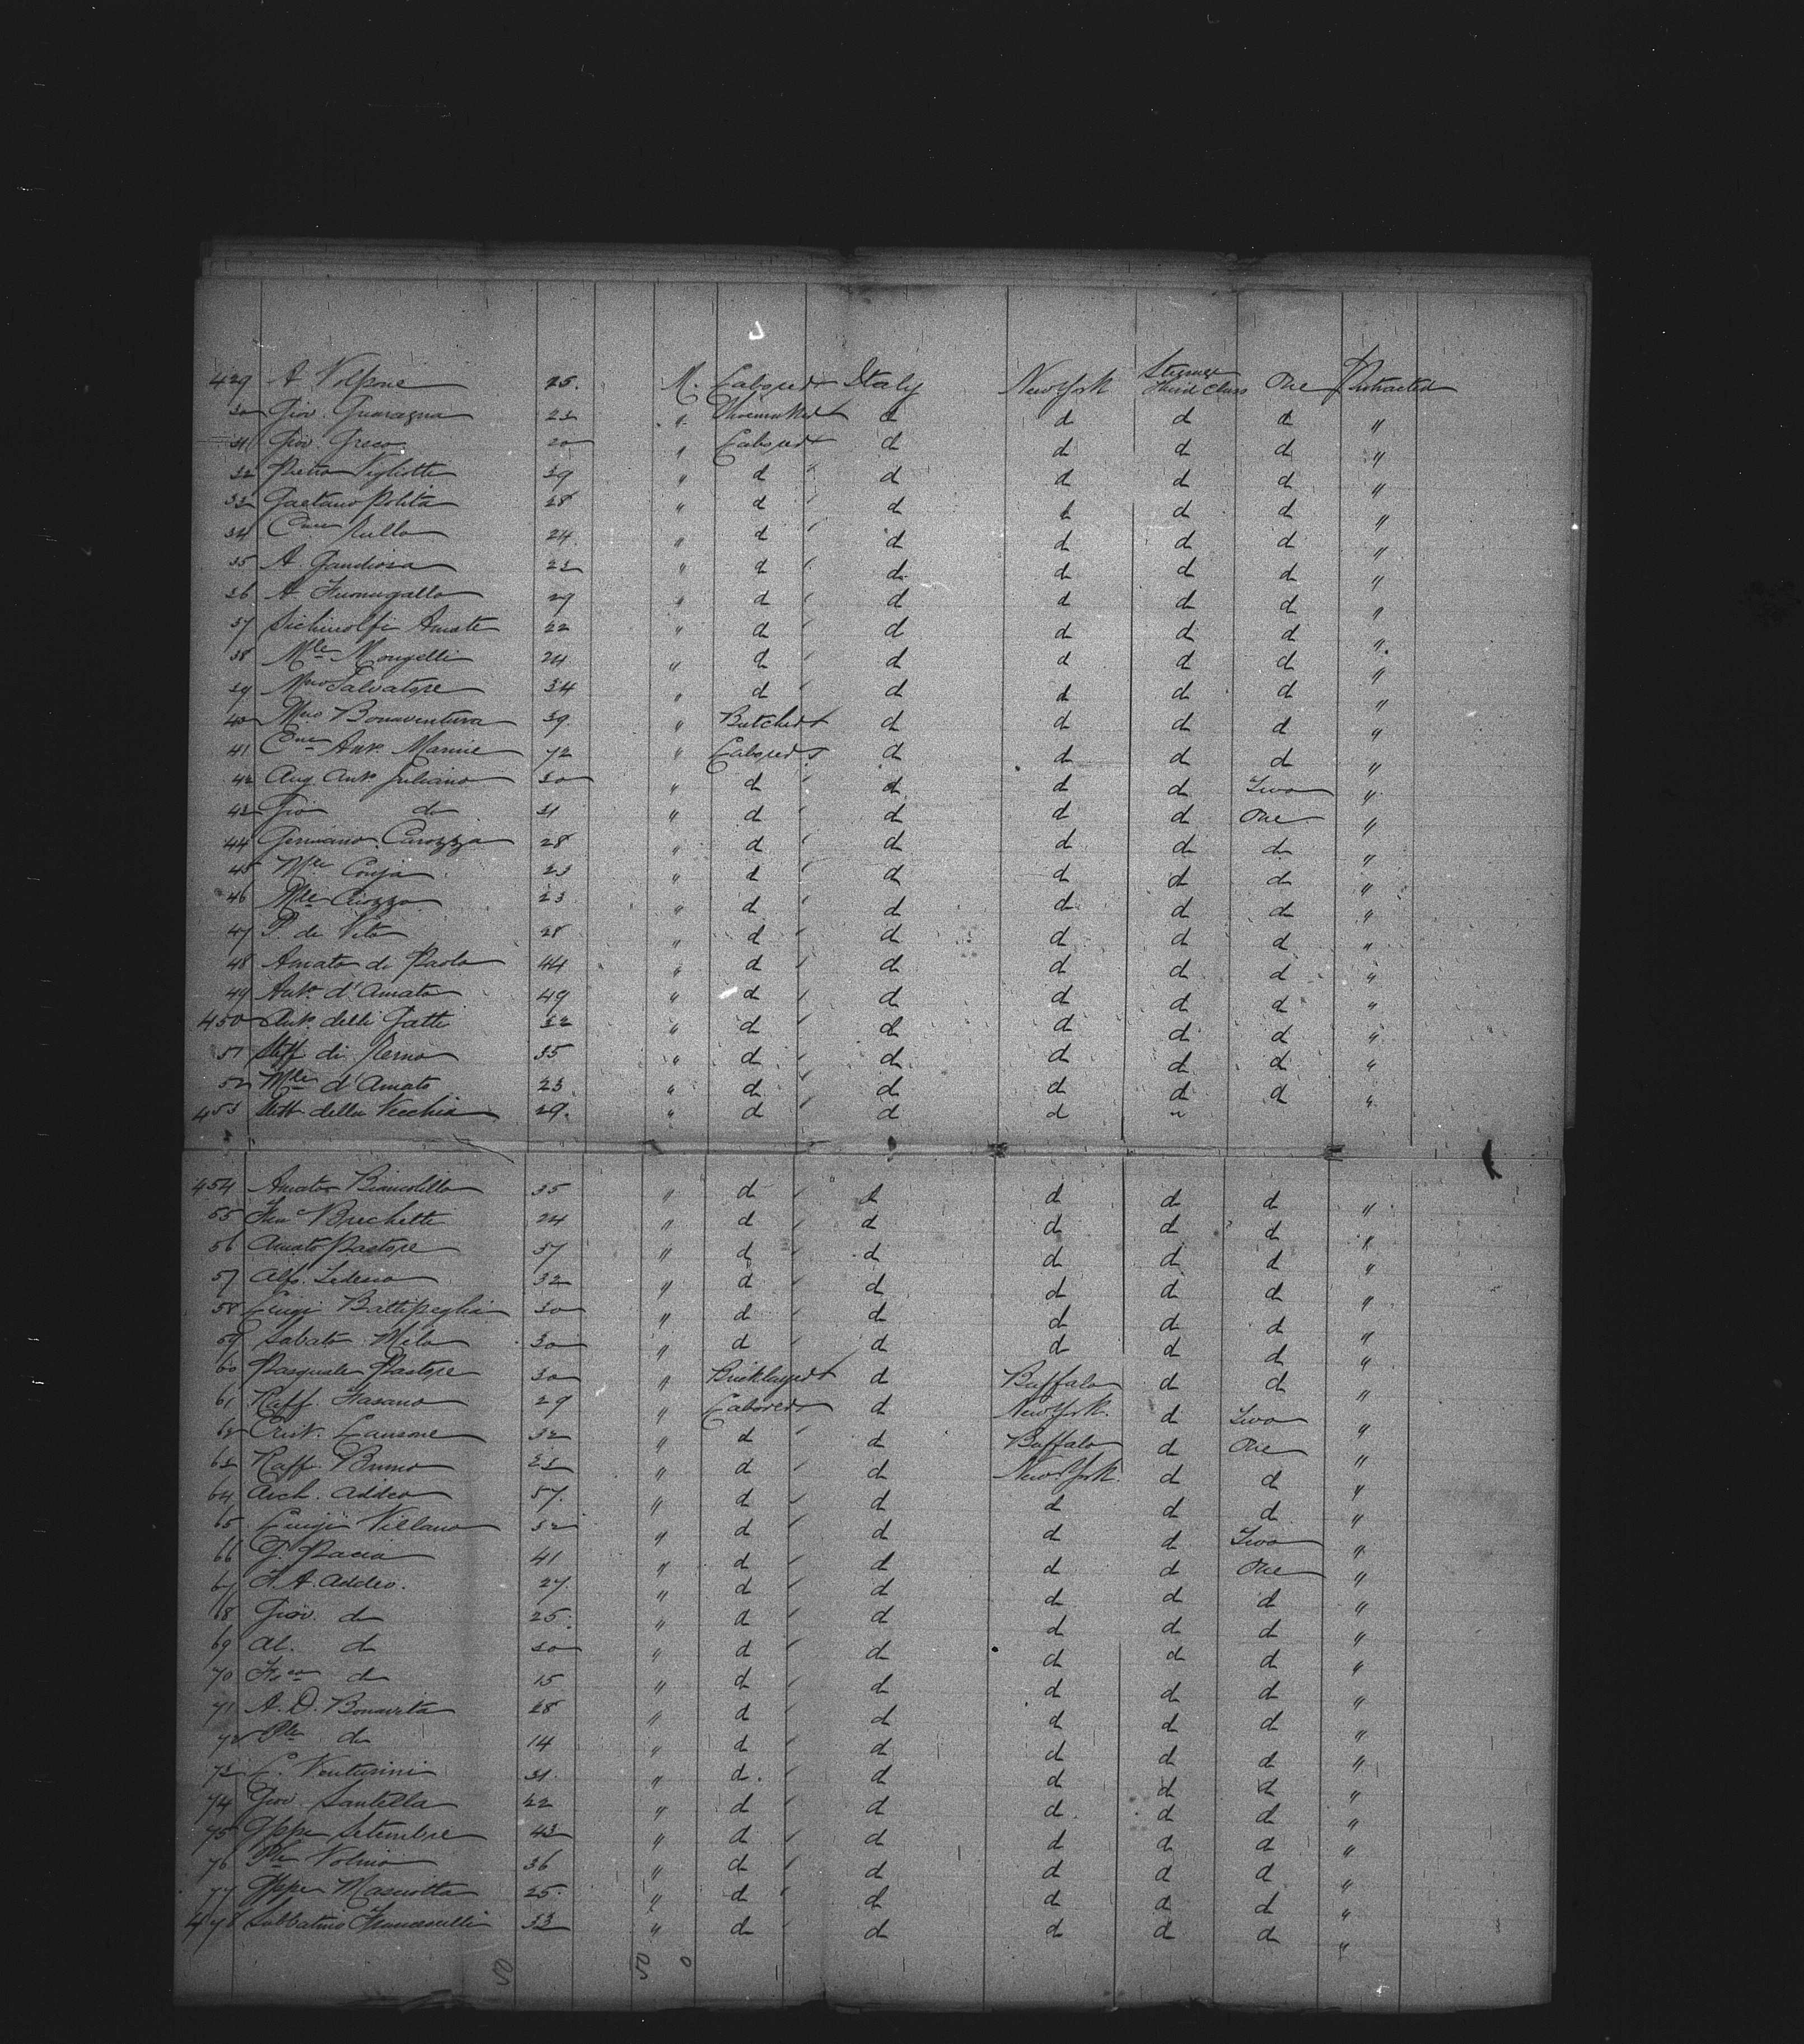 429 A Volpone 25. M. Laborer Italy New York Steerage Third Class One Protracted
30 Giov. Guaragna 23 " Shoemaker d d d d "
31 Giov. Greco 20 " Laborer d d d d "
32 Pietro Vigliotti 39 " d d d d d "
33 Gaetano Polita 28 " d d d d d "
34 Cne Rullo 24 " d d d d d "
35 A. Gaudiosa 23 " d d d d d "
36 A. Fumagallo 29 " d d d d d "
37 Sichinolfi Amato 22 " d d d d d "
38 Mle Mongelli 24 " d d d d d "
39 Mno Salvatore 34 " d d d d d "
40 Mno Bonaventura 39 " Butcher d d d d "
41 Cne Ant. Marine 72 " Laborer d d d d "
42 Ang. Ant. Juliano 30 " d d d d Two "
43 Gio d 31 " d d d d One "
44 Germano Carozza 28 " d d d d d "
45 Mle 23 " d d d d d "
46 Mle 23 " d d d d d "
47 P. de Vito 28 " d d d d d "
48 Amato di Paolo 44 " d d d d d "
49 Ant. d'Amato 49 " d d d d d "
450 Ant. delli Gatti 32 " d d d d d "
51 Steff di 35 " d d d d d "
52 Mle d'Amato 23 " d d d d d "
453 della Vecchia 29. " d d d "
454 Amato Biancolillo 35 " d d d d d "
55 Brechetti 24 " d d d d d "
56 Amato Pastore 37 " d d d d d "
57 Alf. Tedesco 32 " d d d d d "
58 Luigi Battipaglia 30 " d d d d d "
59 Sabato Mela 30 " d d d d d "
60 Pasquale Pastore 30 " Bricklayer d Buffalo d d "
61 Raff. Fasano 29 " Laborer d New York d Two "
62 Crist. Lansone 32 " d d Buffalo d One "
63 Raff. Bruno 23 " d d New York d d "
64 Arch. Addeo 57. " d d d d d "
65 Luigi Villano 32 " d d d d Two "
66 G. Pacia 41 " d d d d One "
67 F. A. Addeo. 27 " d d d d d "
68 Giov. d 25. " d d d d d "
69 Al. d 30 " d d d d d "
70 Fsco d 15 " d d d d d "
71 A. D. Bonavita 28 " d d d d d "
72 Ple d 14 " d d d d d "
73 C. Venturini 31. " d d d d d "
74 Giov. Santella 22 " d d d d d "
75 Gppe Setembre 43 " d d d d d "
76 Ple Volino 36 " d d d d d "
77 Gppe Mascotta 25. " d d d d d "
478 Sabbatino 33 " d d d d d "
50 50 0